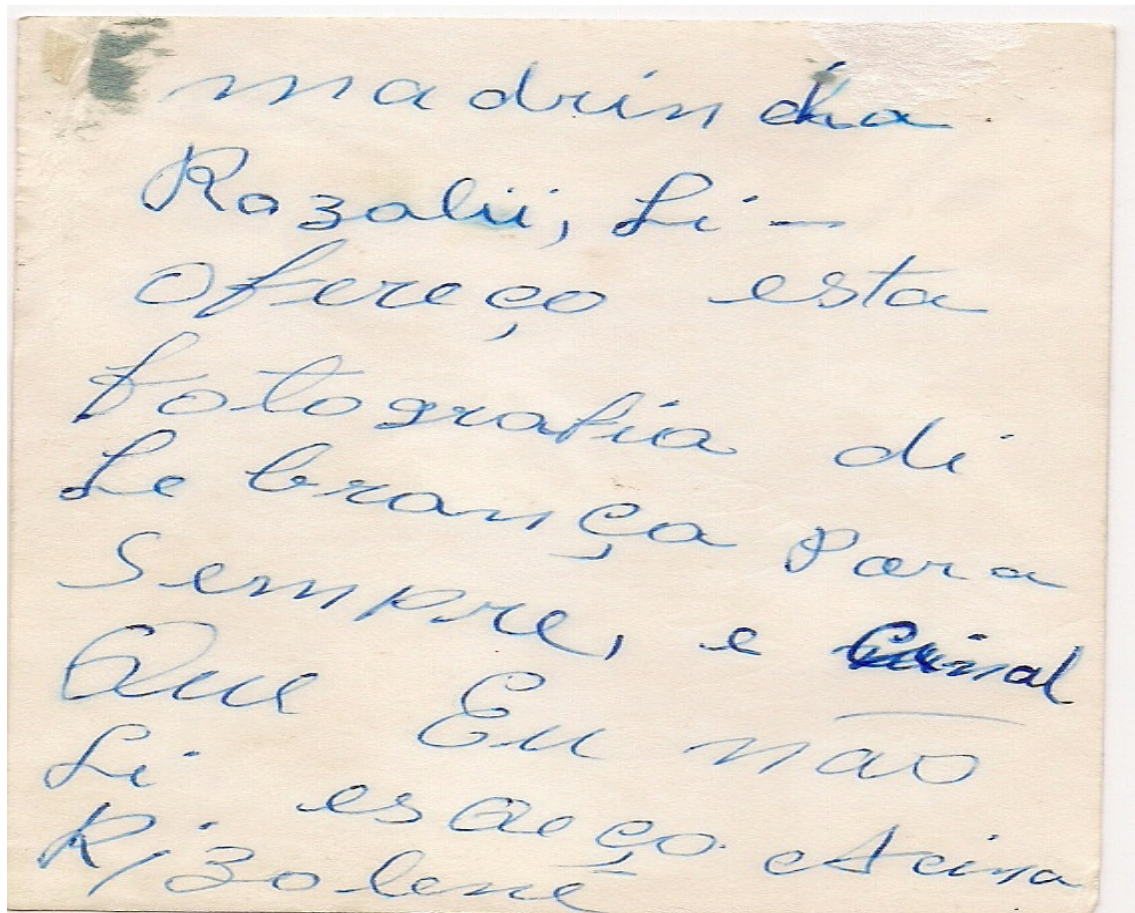 madrinha
Razalii, Li -
ofereço esta
fotografia di
Le brança Para
Sempre, e Cinal
Que Eu não
Li esqeço. Acina
Rizolene